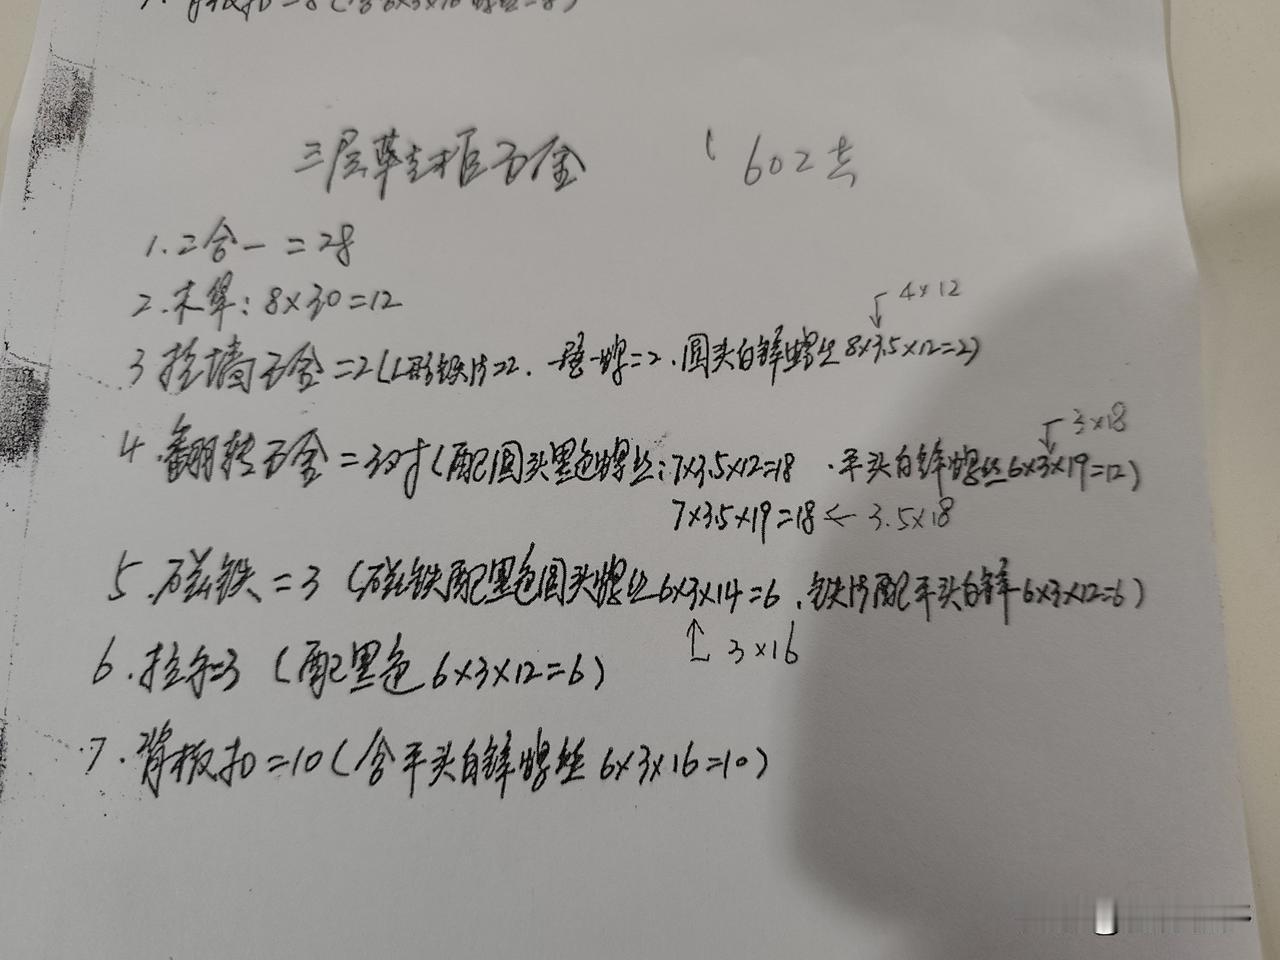 7.背板扣=8(含6×3×16螺丝=8)
三层鞋柜五金 (602去
1.二合一=28
2.木犀:8×30=12
4×12
3拉墙五金=2(L形铁片=2.一壁一螺=2.圆头白锌螺丝8×3.5×12=2)
3×18
4.翻转五金=3对(配圆头黑色螺丝:7×3.5×12=18.平头白锌螺丝6×3×19=12)
7×3.5×19=18←3.5×18
5.磁铁=3(磁铁配黑色圆头螺丝6×3×14=6.铁片配平头白锌6×3×12=6)
3×16
6.拉手=3(配黑色6×3×12=6)
7.背板扣=10(含平头白锌螺丝6×3×16=10)